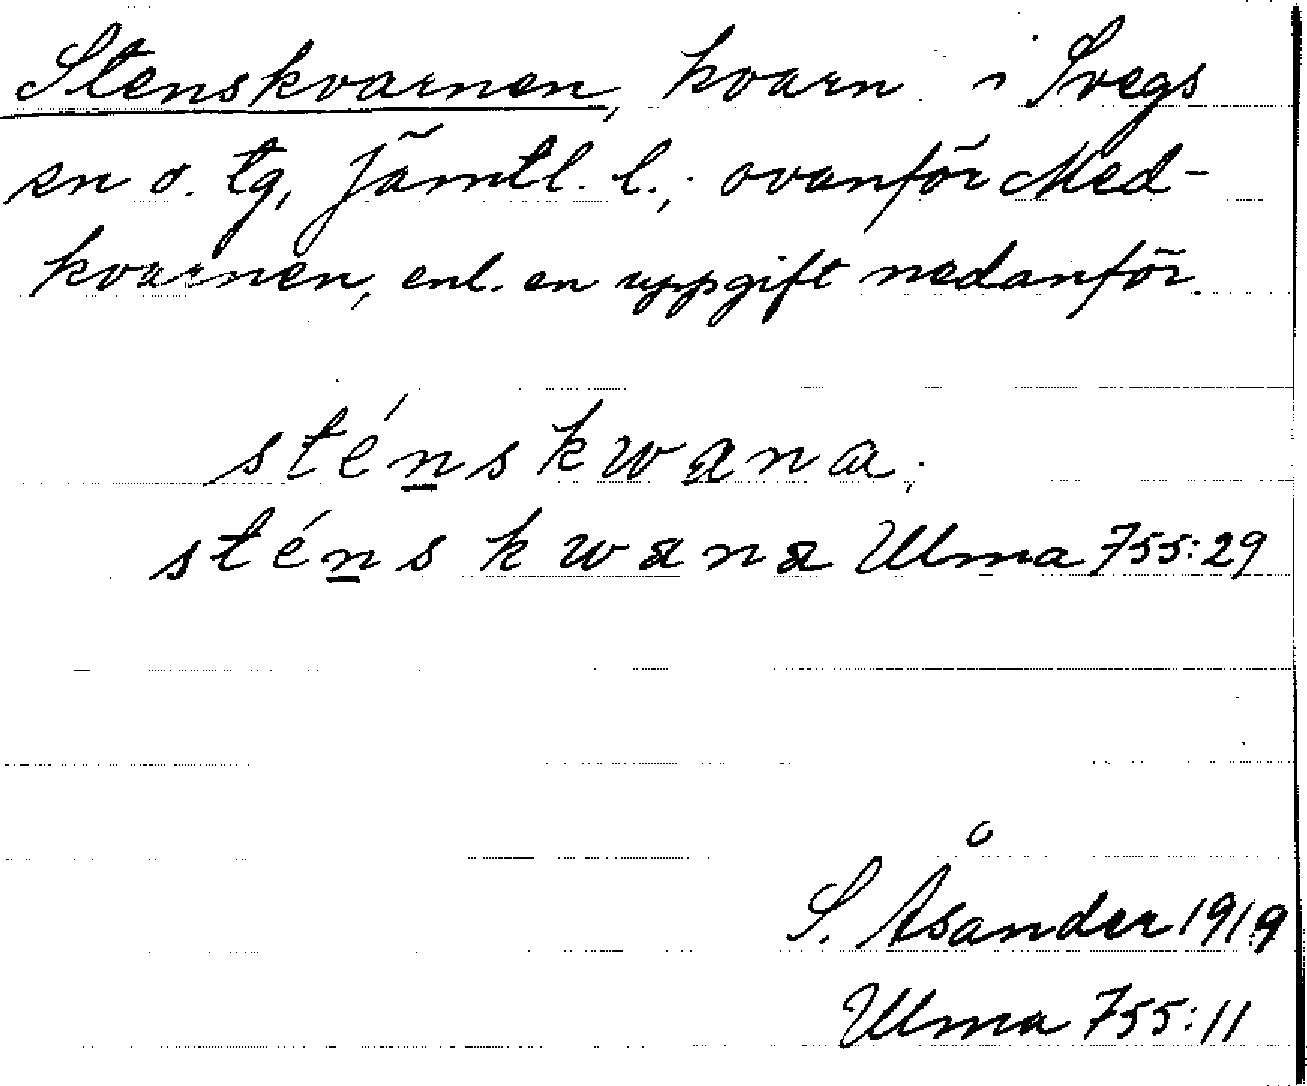 Stenskvarnen, kvarn i Svegs
sn o. tg, Jämtl. l.; ovanför Med-
kvarnen, enl. en uppgift nedanför.
sténskwana;
sténskwana Ulma 755:29
S. Åsander 1919
Ulma 755:11